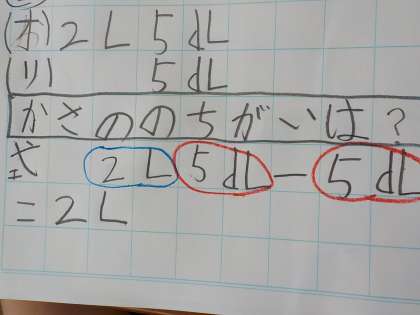 (オ)2L5dL
(リ) 5dL
かさののちがいは?
式 2L5dL-5dL
=2L